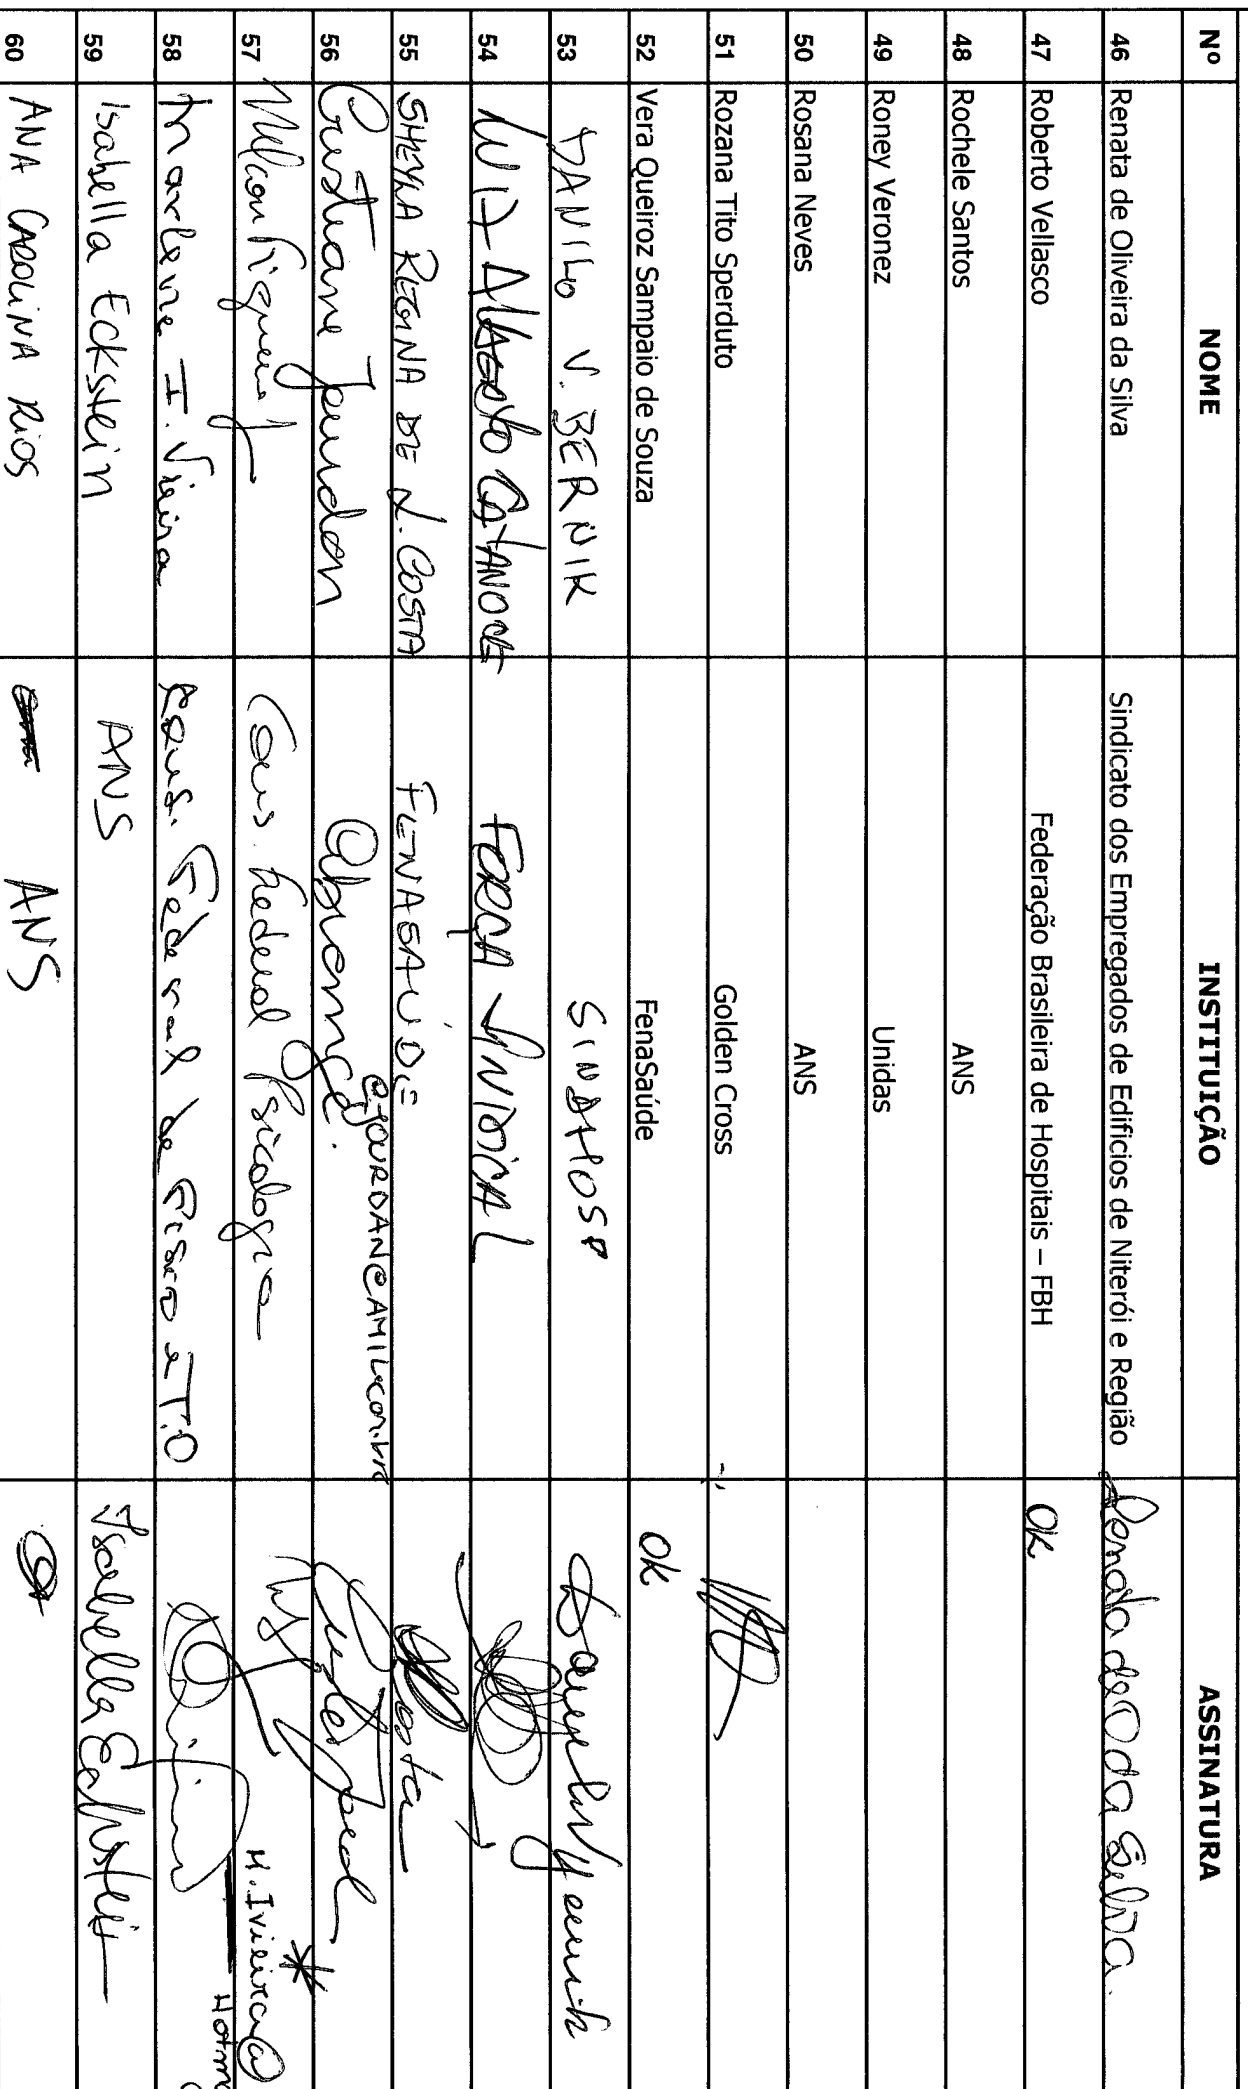 Nº NOME INSTITUIÇÃO ASSINATURA
46 Renata de Oliveira da Silva Sindicato dos Empregados de Edificios de Niterói e Região Renata de O da Silva
47 Roberto Vellasco Federação Brasileira de Hospitais – FBH OK
48 Rochele Santos ANS
49 Roney Veronez Unidas
50 Rosana Neves ANS
51 Rozana Tito Sperduto Golden Cross
52 Vera Queiroz Sampaio de Souza FenaSaúde OK
53 DANILO V. BERNIK SINDHOSP
54 FORÇA SINDICAL
55 SHEYLA REGINA DE L. COSTA FENASAÚDE Costa
56 Cristiane Jourdan Abramge.
CJOURDAN@AMIL.COM.BR
57 Cons. Federal Psicologia
58 Marlene I. Vieira Cons. Federal de Fisio e T.O
M.Ivieira@
Hotm
59 Isabella Eckstein ANS Isabella Eckstein
60 ANA CAROLINA RIOS ANS